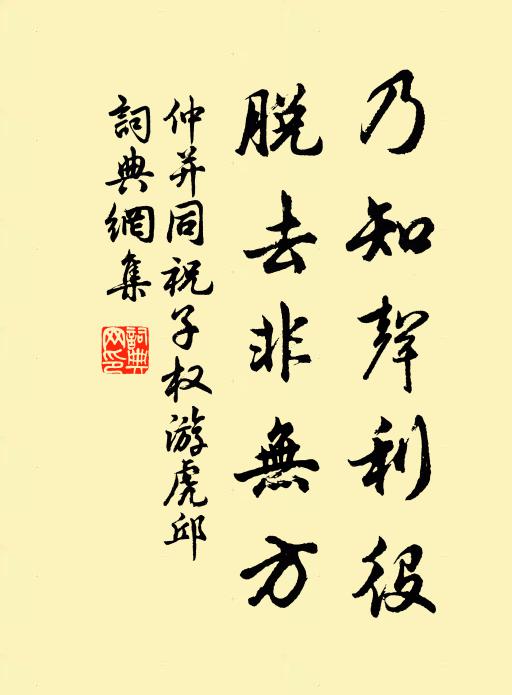 乃知聲利役
脫去非無方
仲并同祝子权游虎邱
詞典網集
詞典网印